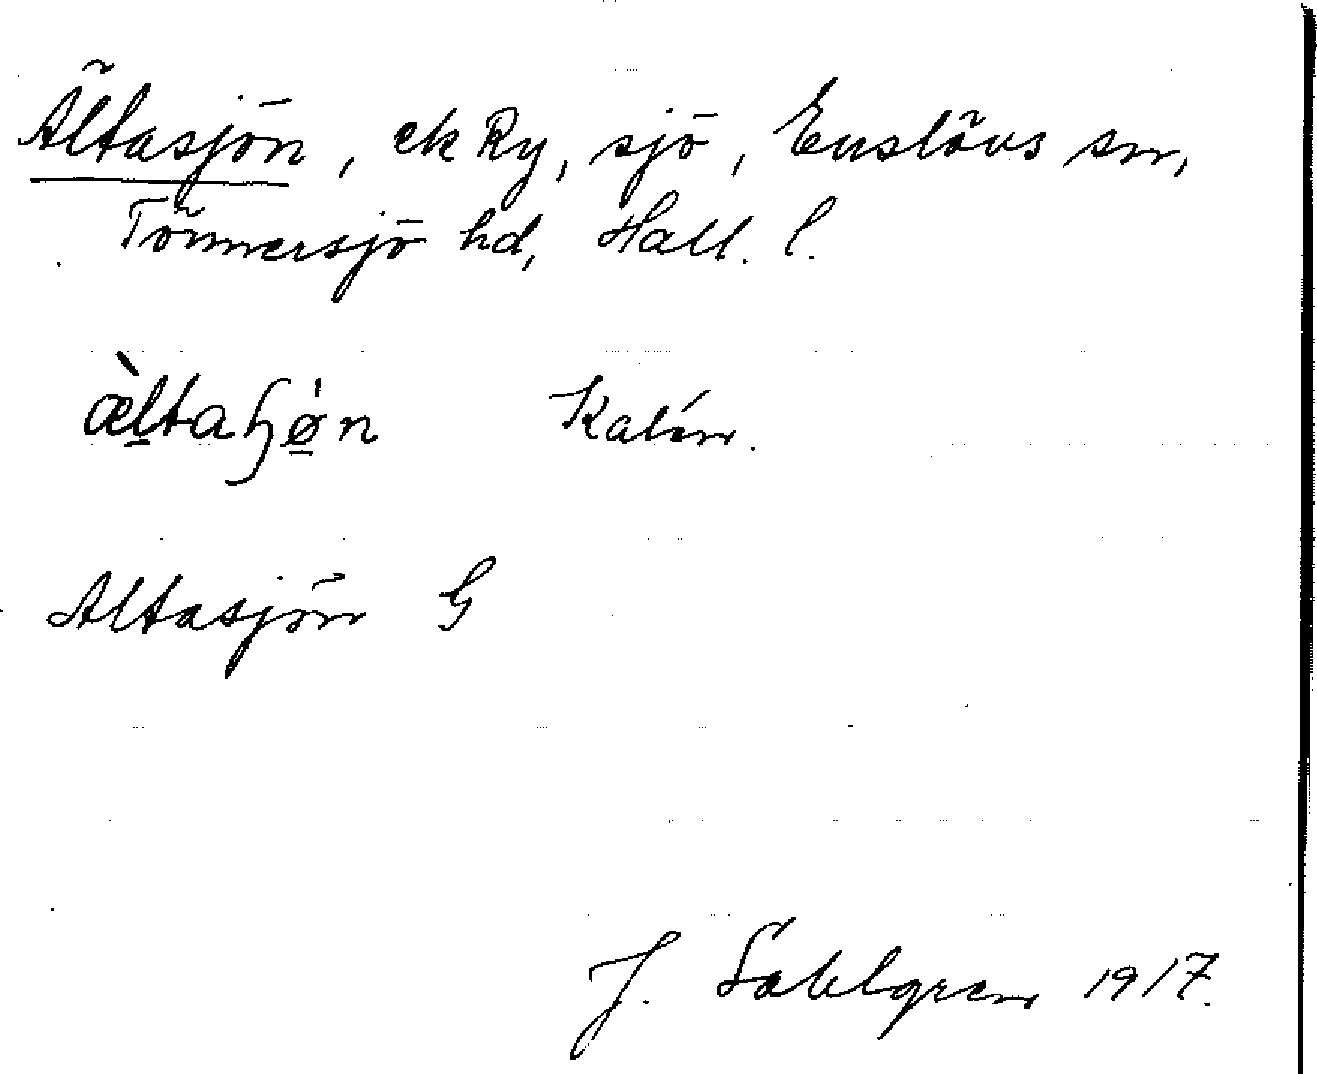 Ältasjön, ek Ry, sjö, Enslövs sn,
Tönnersjö hd, Hall. l.
æ̀ltaɧø̀n Kalén.
Altasjön G
J. Sahlgren 1917.